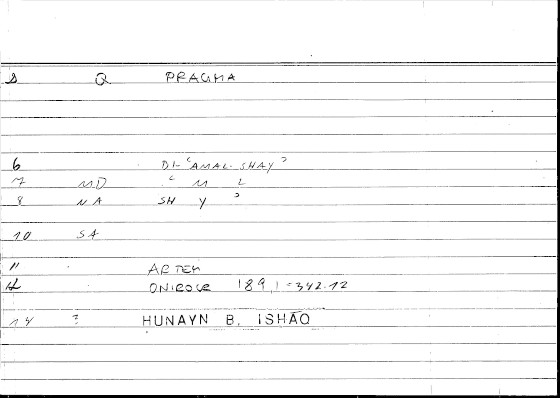 S Q PRAGMA
6 DI-ʿAMAL-SHAYʾ
7 MD ʿ M L
8 NA SH Y ʾ
10 SA
11 ARTEM
12 ONIROCR 189,1=342.12
14 ? HUNAYN B. ISHĀQ